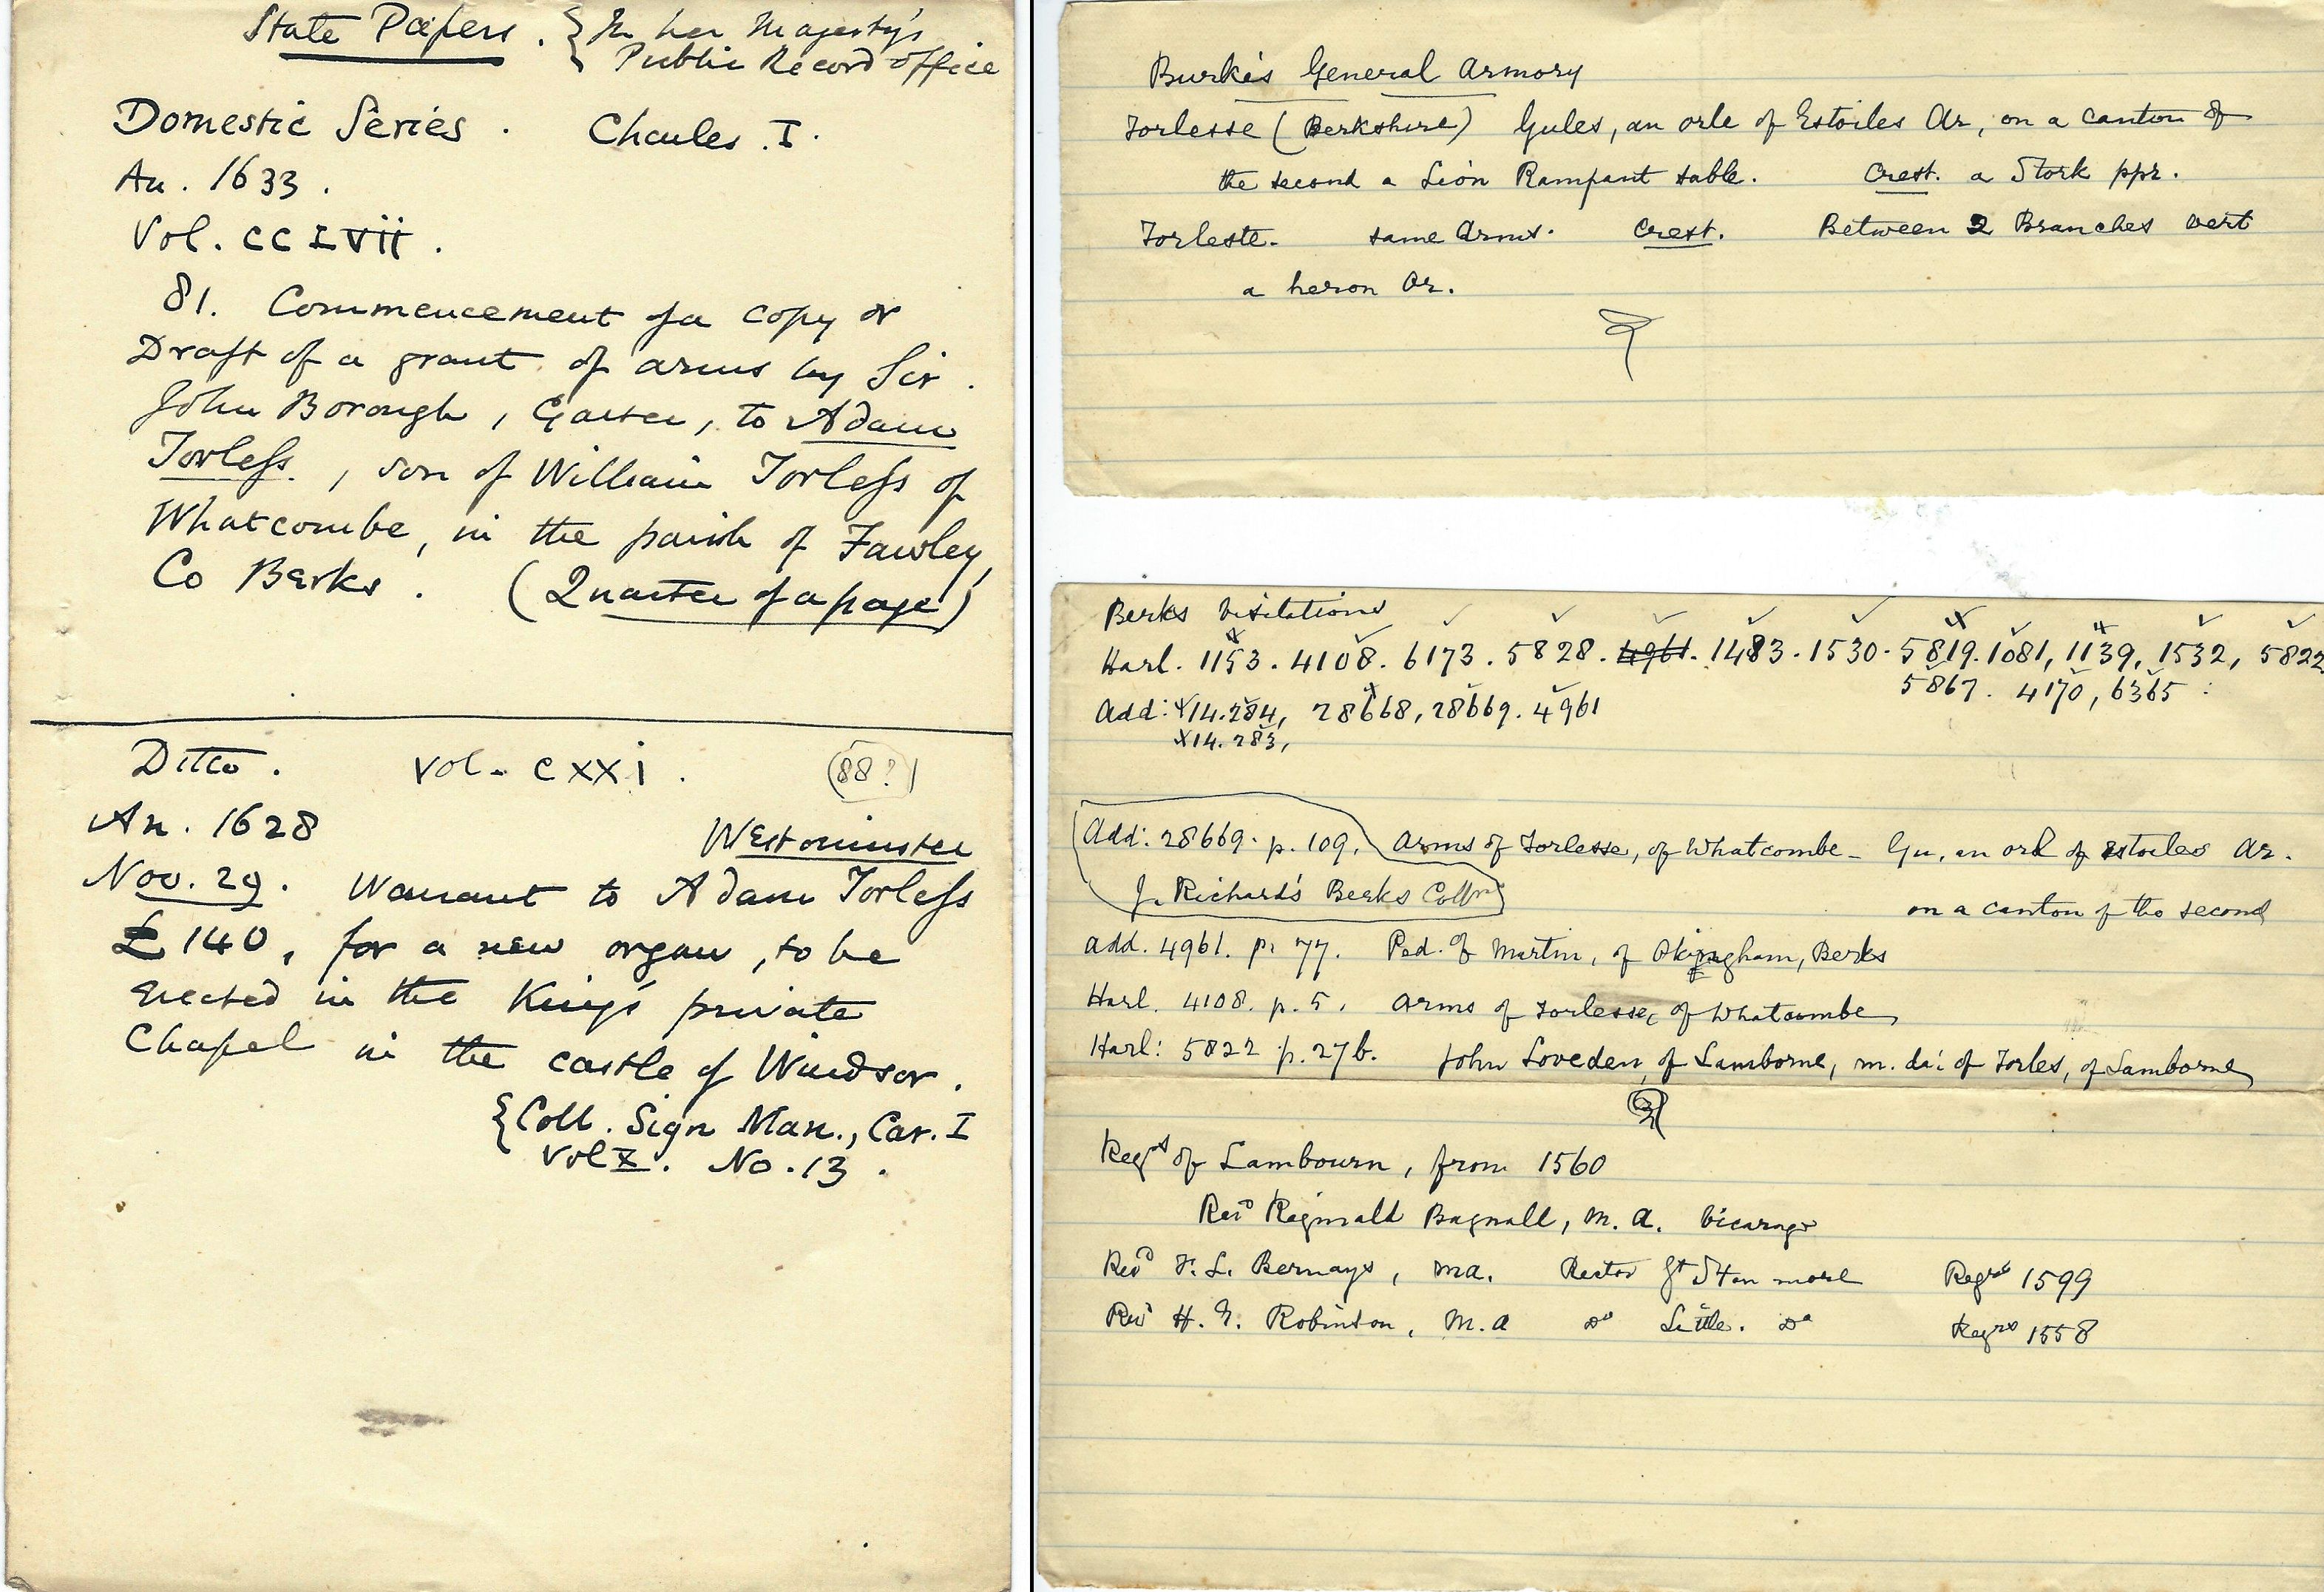 State Papers. { In her Majesty's
Public Record office
Domestic Series. Charles. I.
An. 1633.
Vol. CCLVII.
81. Commencement of a copy or
Draft of a grant of arms by Sir.
John Borough, Garter, to Adam
Torless., son of William Torless of
Whatcombe, in the parish of Fawley,
Co Berks. (Quarter of a page)
Ditto. Vol. CXXI. (88?)
An. 1628 Westminster
Nov. 29. Warrant to Adam Torless
£140, for a new organ, to be
erected in the King's private
Chapel in the castle of Windsor.
{ Coll. Sign Man., Car. I
Vol X. No. 13.
Burke's General Armory
Torlesse (Berkshire) Gules, an orle of Estoiles Ar, on a canton of
the second a Lion Rampant sable. Crest. a Stork ppr.
Torleste. same Arms. Crest. Between 2 Branches vert
a heron Ar.
Berks Visitations
Harl. 1153. 4108. 6173. 5828. 4961. 1483. 1530. 5819. 1081, 1139, 1532, 5822
5867. 4170, 6365:
Add: x14.284, 28668, 28669. 4961
x14.283,
Add: 28669. p. 109. Arms of Torlesse, of Whatcombe - Gu, an orl of estoiles Ar.
J. Richard's Berks Colln on a canton of the second
Add. 4961. p. 77. Ped. of Martin, of Okingham, Berks
Harl. 4108. p. 5. Arms of Torlesse, of Whatcombe
Harl: 5822 p. 27b. John Loveden, of Lamborne, m. da: of Torles, of Lamborne
Regs of Lambourn, from 1560
Revd Reginald Bagnall, M. A. Vicarage
Revd F. L. Bernays, MA. Rector Gt Stanmore Regrs 1599
Revd H. N. Robinson, M.A Do Little. Do Regrs 1558